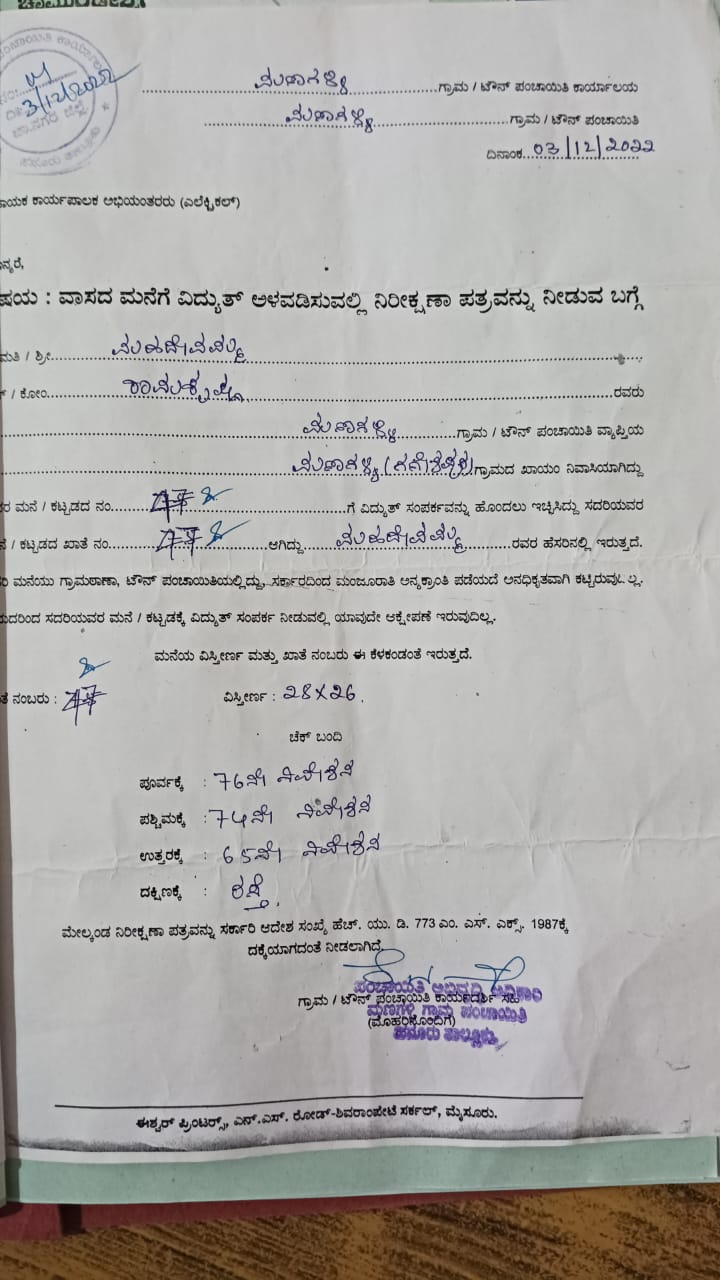 ಪಂಚಾಯಿತಿ ಕಾರ್ಯಾಲಯ
3/12/2022
ಚಾ.ನಗರ ಜಿಲ್ಲೆ
ಮಣಗಳ್ಳಿ ಗ್ರಾಮ / ಟೌನ್ ಪಂಚಾಯಿತಿ ಕಾರ್ಯಾಲಯ
ಮಣಗಳ್ಳಿ ಗ್ರಾಮ / ಟೌನ್ ಪಂಚಾಯಿತಿ
ದಿನಾಂಕ 03/12/2022
ಾಯಕ ಕಾರ್ಯಪಾಲಕ ಅಭಿಯಂತರರು (ಎಲೆಕ್ಟ್ರಿಕಲ್)
ನ್ಯರೆ,
ಷಯ : ವಾಸದ ಮನೆಗೆ ವಿದ್ಯುತ್ ಅಳವಡಿಸುವಲ್ಲಿ ನಿರೀಕ್ಷಣಾ ಪತ್ರವನ್ನು ನೀಡುವ ಬಗ್ಗೆ
ಮತಿ / ಶ್ರೀ. ಮಹದೇವಮ್ಮ
/ ಕೋಂ. ರಾಮಕೃಷ್ಣ ರವರು
ಮಣಗಳ್ಳಿ ಗ್ರಾಮ / ಟೌನ್ ಪಂಚಾಯಿತಿ ವ್ಯಾಪ್ತಿಯ
ಮಣಗಳ್ಳಿ ಗ್ರಾಮದ ಖಾಯಂ ನಿವಾಸಿಯಾಗಿದ್ದು
ರ ಮನೆ / ಕಟ್ಟಡದ ನಂ. ಗೆ ವಿದ್ಯುತ್ ಸಂಪರ್ಕವನ್ನು ಹೊಂದಲು ಇಚ್ಛಿಸಿದ್ದು ಸದರಿಯವರ
/ ಕಟ್ಟಡದ ಖಾತೆ ನಂ. ಆಗಿದ್ದು ಮಹದೇವಮ್ಮ ರವರ ಹೆಸರಿನಲ್ಲಿ ಇರುತ್ತದೆ.
ರಿ ಮನೆಯು ಗ್ರಾಮಠಾಣಾ, ಟೌನ್ ಪಂಚಾಯಿತಿಯಲ್ಲಿದ್ದು, ಸರ್ಕಾರದಿಂದ ಮಂಜೂರಾತಿ ಅನ್ಯಕ್ರಾಂತಿ ಪಡೆಯದೆ ಅನಧಿಕೃತವಾಗಿ ಕಟ್ಟಿರುವುದಿಲ್ಲ.
ುದರಿಂದ ಸದರಿಯವರ ಮನೆ / ಕಟ್ಟಡಕ್ಕೆ ವಿದ್ಯುತ್ ಸಂಪರ್ಕ ನೀಡುವಲ್ಲಿ ಯಾವುದೇ ಆಕ್ಷೇಪಣೆ ಇರುವುದಿಲ್ಲ.
ಮನೆಯ ವಿಸ್ತೀರ್ಣ ಮತ್ತು ಖಾತೆ ನಂಬರು ಈ ಕೆಳಕಂಡಂತೆ ಇರುತ್ತದೆ.
ತೆ ನಂಬರು : ವಿಸ್ತೀರ್ಣ : 28X26.
ಚೆಕ್ ಬಂದಿ
ಪೂರ್ವಕ್ಕೆ : 76ನೇ ನಿವೇಶನ
ಪಶ್ಚಿಮಕ್ಕೆ : 74ನೇ ನಿವೇಶನ
ಉತ್ತರಕ್ಕೆ : 65ನೇ ನಿವೇಶನ
ದಕ್ಷಿಣಕ್ಕೆ : ರಸ್ತೆ.
ಮೇಲ್ಕಂಡ ನಿರೀಕ್ಷಣಾ ಪತ್ರವನ್ನು ಸರ್ಕಾರಿ ಆದೇಶ ಸಂಖ್ಯೆ ಹೆಚ್. ಯು. ಡಿ. 773 ಎಂ. ಎಸ್. ಎಕ್ಸ್. 1987ಕ್ಕೆ
ದಕ್ಕೆಯಾಗದಂತೆ ನೀಡಲಾಗಿದೆ.
ಪಂಚಾಯಿತಿ ಅಭಿವೃದ್ಧಿ ಅಧಿಕಾರಿ
ಗ್ರಾಮ / ಟೌನ್ ಪಂಚಾಯಿತಿ ಕಾರ್ಯದರ್ಶಿ ಸಹಿ
ಮಣಗಳ್ಳಿ ಗ್ರಾಮ ಪಂಚಾಯಿತಿ
(ಮೊಹರಿನೊಂದಿಗೆ)
ಹನೂರು ತಾಲ್ಲೂಕು
ಈಶ್ವರ್ ಪ್ರಿಂಟರ್ಸ್, ಎನ್.ಎಸ್. ರೋಡ್-ಶಿವರಾಂಪೇಟೆ ಸರ್ಕಲ್, ಮೈಸೂರು.